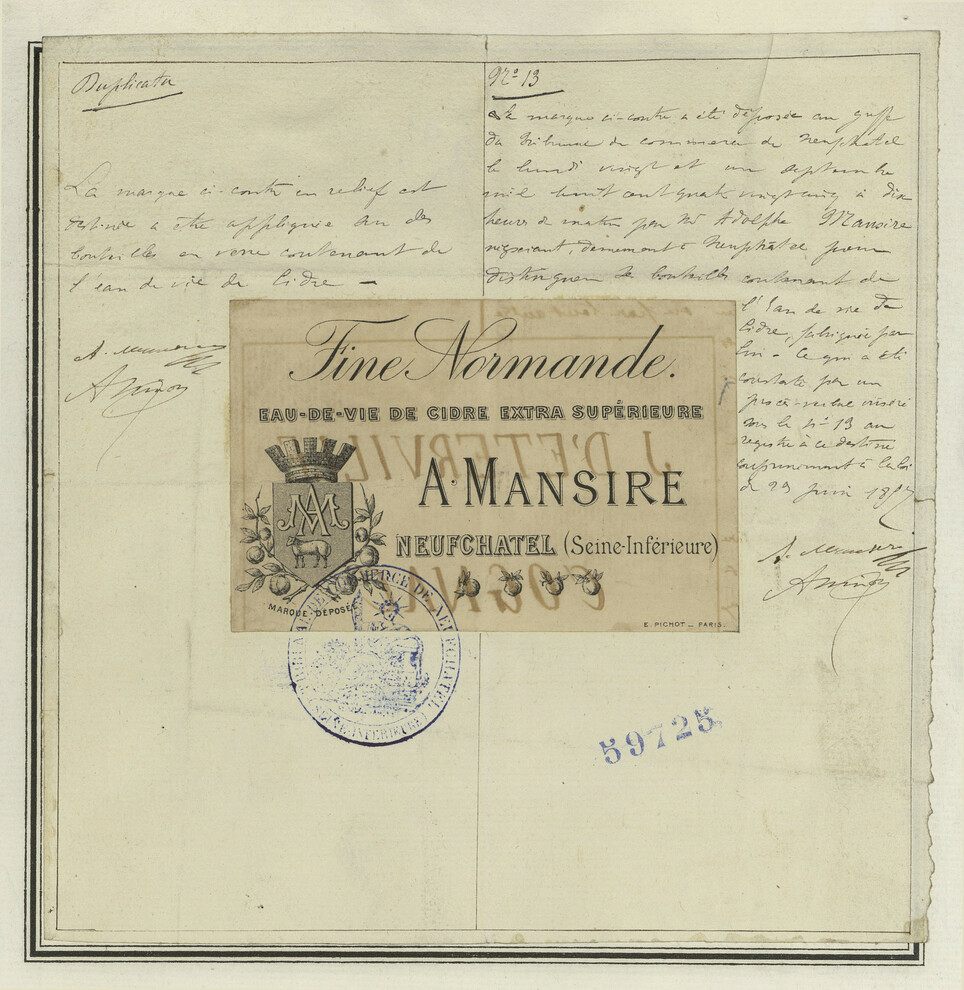 Duplicata
La marque ci-contre en relief est
destinée a être appliquée sur des
bouteilles en verre contenant de
l'eau de vie de Cidre —
A. Mansire
Nº 13
La marque ci-contre a été déposée au greffe
du tribunal de commerce de Neufchatel
le lundi vingt et un septembre
mil huit cent quatre vingt cinq à dix
heures du matin par Mr Adolphe Mansire
négociant, demeurant à Neufchatel pour
distinguer des bouteilles contenant de
l'Eau de vie de
Cidre, fabriquée par
lui - Ce qui a été
constaté par un
procès-verbal inséré
sous le nº 13 au
registre à ce destiné
conformément à la loi
du 23 juin 1857
A. Mansire
Fine Normande.
EAU-DE-VIE DE CIDRE EXTRA SUPÉRIEURE
J. D'ETERVILLE
A. MANSIRE
AM
NEUFCHATEL (Seine-Inférieure)
COGNAC
MARQUE DÉPOSÉE
E. PICHOT — PARIS.
TRIBUNAL DE COMMERCE DE NEUFCHATEL
(SEINE-INFÉRIEURE)
59725